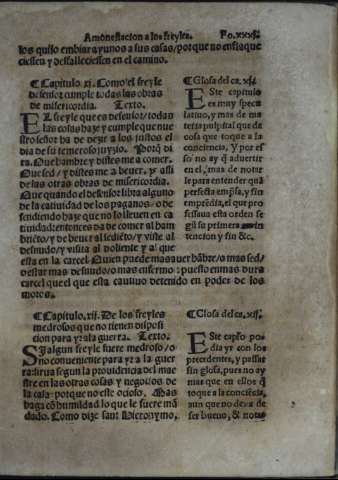 Amonestacion a los freyles. Fo.xxxj.
los quiso embiar ayunos a sus casas/porque no enflaque
ciessen y desfalleciessen en el camino.
¶Capitulo xj. Como el freyle
defensor cumple todas las obras
de misericordia. Texto.
EL freyle que es defensor/todas
las cosas haze y cumple que nue
stro señor ha de dezir a los justos el
dia de su temeroso juyzio. Porq̃ di
ra. Oue hambre y distes me a comer.
Oue sed/y distes me a beuer. ⁊ assi
de las otras obras de misericordia.
Que quando el defensor libra alguno
de la catiuidad de los paganos/o de
fendiendo haze que no lo lleuen en ca
tiuidad: entonces da de comer al ham
briẽto/y de beuer al sediẽto/y viste al
desnudo/y visita al doliente y al que
esta en la carcel. Quien puede mas auer hãbre/o mas sed/
o estar mas desnudo/o mas enfermo: puesto en mas dura
carcel que el que esta catiuo detenido en poder de los
moros.
¶Glosa del ca. xj.
ESte capitulo
es muy specu
latiuo, y mas de ma
teria pulpital que de
cosa que toque a la
conciencia, Y por es
so no ay q̃ aduertir
en el, mas de notar
le para entender quã
perfecta emp̃sa, y sin
emprẽdia, el que pro
fessaua esta orden se
gũ su primera
tencion y fin &c.
¶Capitulo. xij. De los freyles
medrosos que no tienen disposi
cion para yr a la guerra. Texto.
SI algun freyle fuere medroso/o
no conueniente para yr a la guer
ra: sirua segun la prouidencia del mae
stre en las otras cosas y negocios de
la casa: porque no este ocioso. Mas
haga cõ humildad lo que le fuere mã
dado. Como dize sant Hieronymo,
¶Glosa del ca. xij.
ESte capĩo po
dia yr con los
precedentes, y passar
sin glosa, pues no ay
mas que en ellos q̃
toque a la cõsciẽcia,
aun que no dexa de
ser bueno, & notar